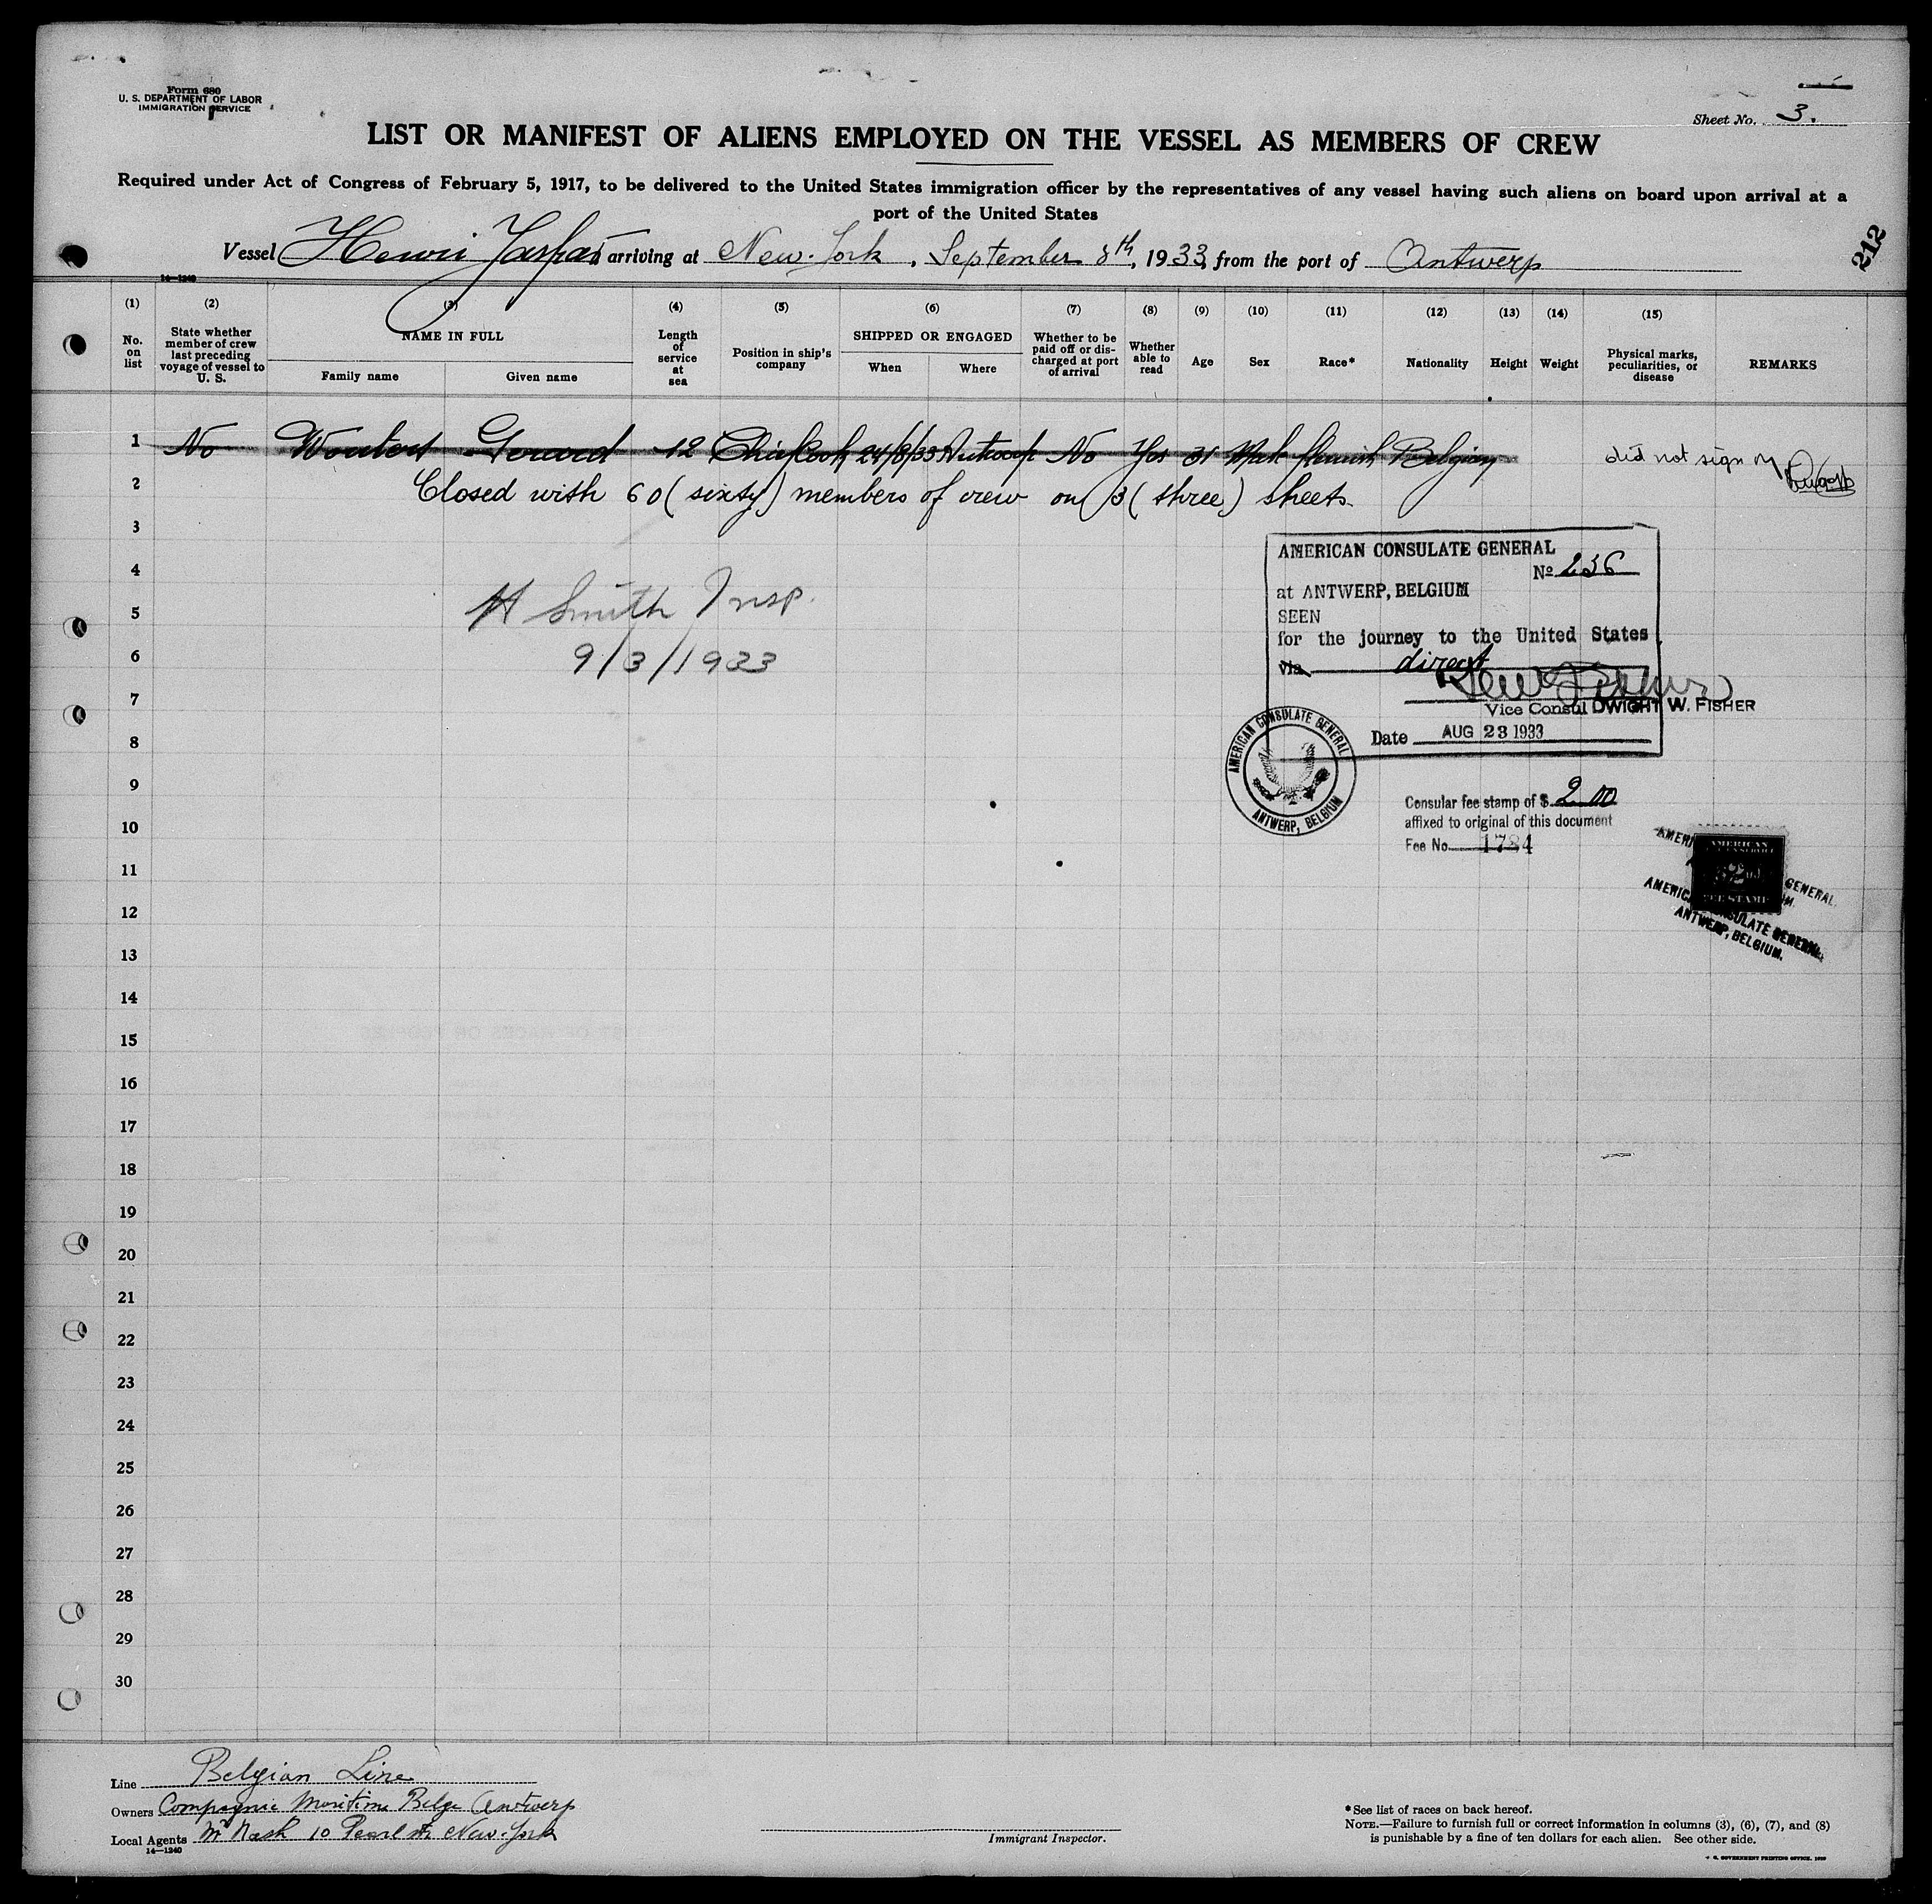 Form 680
U. S. DEPARTMENT OF LABOR
IMMIGRATION SERVICE
Sheet No. 3.
LIST OR MANIFEST OF ALIENS EMPLOYED ON THE VESSEL AS MEMBERS OF CREW
Required under Act of Congress of February 5, 1917, to be delivered to the United States immigration officer by the representatives of any vessel having such aliens on board upon arrival at a
port of the United States
Vessel Henri Jaspar arriving at New-York, September 8th, 1933, from the port of Antwerp
212
14—1240
(1) (2) (3) (4) (5) (6) (7) (8) (9) (10) (11) (12) (13) (14) (15)
No. on list
State whether member of crew last preceding voyage of vessel to U. S.
NAME IN FULL
Family name
Given name
Length of service at sea
Position in ship's company
SHIPPED OR ENGAGED
When
Where
Whether to be paid off or discharged at port of arrival
Whether able to read
Age
Sex
Race*
Nationality
Height
Weight
Physical marks, peculiarities, or disease
REMARKS
1 No Wouters Gerard 12 Chief Cook 24/8/33 Antwerp No Yes 31 Male flemish Belgian did not sign on
2 Closed with 60 (sixty) members of crew on 3 (three) sheets.
3
4
5
6
7
8
9
10
11
12
13
14
15
16
17
18
19
20
21
22
23
24
25
26
27
28
29
30
H Smith Insp.
9/3/1933
AMERICAN CONSULATE GENERAL
No 236
at ANTWERP, BELGIUM
SEEN
for the journey to the United States
via direct
Vice Consul DWIGHT W. FISHER
Date AUG 23 1933
AMERICAN CONSULATE GENERAL
ANTWERP, BELGIUM
Consular fee stamp of $ 2.00
affixed to original of this document
Fee No. 1784
AMERICAN CONSULATE GENERAL
ANTWERP, BELGIUM.
Line Belgian Line
Owners Compagnie Maritime Belge Antwerp
Local Agents Mr Nash 10 Pearl str New-York
14—1240
Immigrant Inspector.
*See list of races on back hereof.
NOTE.—Failure to furnish full or correct information in columns (3), (6), (7), and (8)
is punishable by a fine of ten dollars for each alien. See other side.